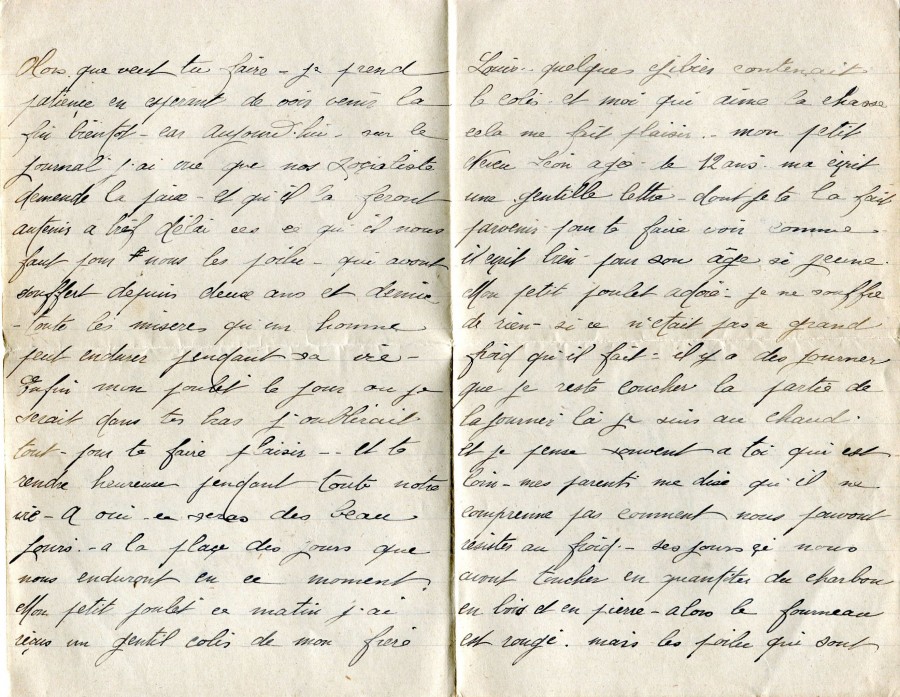 Alors que veut tu faire – je prend
patience en esperant de voir venir la
fin bientot – car aujourd'hui – sur le
journal j'ai vue que nos Soçialiste
demende la paix – et qu'il la feront
a bref délai ces ce qu'il nous
faut pour nous les poilu – qui avont
souffert depuis deux ans et demie
– toute les miseres qu'un homme
peut endurer pendant sa vie –
Enfin mon poulet le jour ou je
serait dans tes bras j'oublirait
tout – pour te faire plaisir – – et te
rendre heureuse pendant toute notre
vie – A oui – ce seras des beau
jours. – a la plaçe des jours que
nous enduront en ce moment
Mon petit poulet ce matin j'ai
reçus un gentil colis de mon frère
Louis – quelques gibier contenait
le colis. et moi qui aime la chasse
cela me fait plaisir. – mon petit
Neveu Léon agé – de 12 ans. ma ecrit
une gentille lettre – dont je te la fait
parvenir – pour te faire voir comme
il ecrit bien – pour son âge si jeune.
Mon petit poulet adoré – je ne souffre
de rien – si ce n'etait pas a grand
froid qu'il fait = il y a des journer
que je reste coucher la partie de
la journer là je suis au chaud.
et je pense souvent a toi qui est
loin – mes parents me dise qu'il ne
comprenne pas comment nous pouvont
résister au froid. – ses jours çi nous
avont toucher en quantiter du charbon
en bois et en pierre – alors le fourneau
est rouge. mais les poilu qui sont